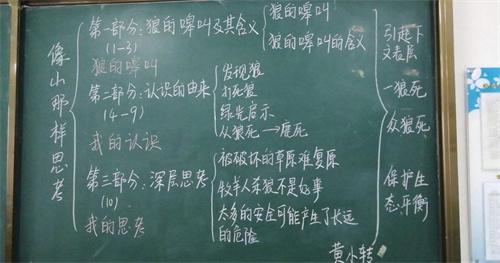 像山那样思考
第一部分：狼的嗥叫及其含义
(1-3)
狼的嗥叫
狼的嗥叫
狼的嗥叫的含义
第二部分：认识的由来
(4-9)
我的认识
发现狼
打死狼
绿光启示
从狼死→鹿死
第三部分：深层思考
(10)
我的思考
被破坏的草原难复原
牧羊人杀狼不是好事
太多的安全可能产生了长远
的危险
引起下
文表层
一狼死
众狼死
保护生
态平衡
黄小转